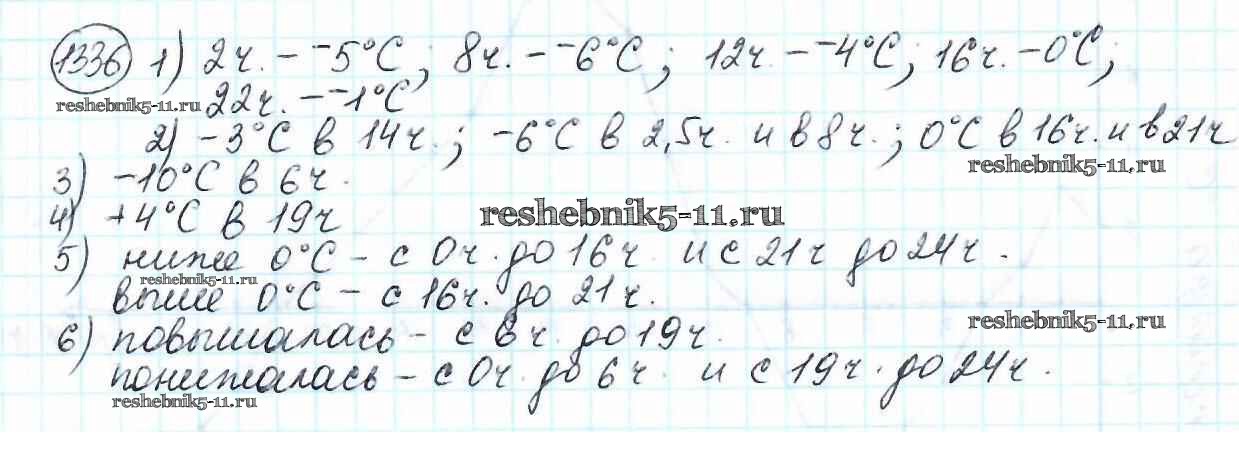 1336 1) 2ч. – -5°C; 8ч. – -6°C; 12ч – -4°C; 16ч. – 0°C;
reshebnik5-11.ru 22ч. – -1°C
2) -3°C в 14ч.; -6°C в 2,5ч. и в 8ч.; 0°C в 16ч. и в 21ч
reshebnik5-11.ru
3) -10°C в 6ч.
4) +4°C в 19ч
reshebnik5-11.ru
5) ниже 0°C – с 0ч. до 16ч и с 21ч до 24ч.
reshebnik5-11.ru
выше 0°C – с 16ч. до 21ч.
reshebnik5-11.ru
6) повышалась – с 6ч. до 19ч.
понижалась – с 0ч. до 6ч и с 19ч. до 24ч.
reshebnik5-11.ru